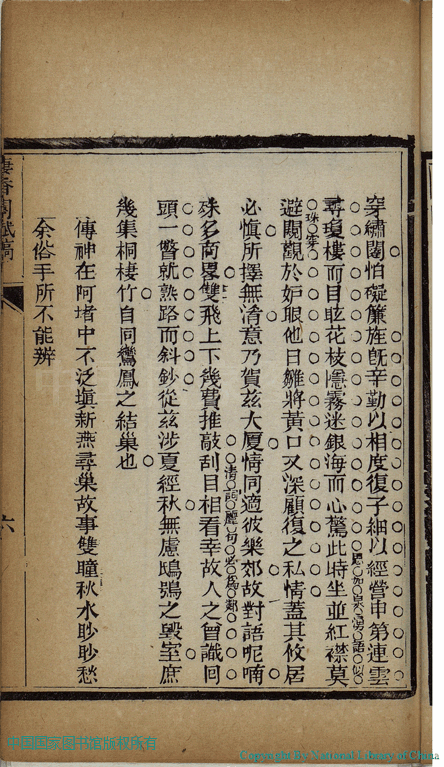 穿繡闥怕礙簾旌旣辛勤以相度復子細以經營申第連雲
尋瓊樓而目眩花枝隱霧迷銀海而心驚此時坐並紅襟莫
思如泉湧語似
珠穿
避闚觀於妒眼他日雛將黃口又深顧復之私情蓋其攸居
必愼所擇無淆意乃賀茲大厦情同適彼樂郊故對語呢喃
清詞麗句必爲鄰
殊多商畧雙飛上下幾費推敲刮目相看幸故人之曾識回
頭一瞥就熟路而斜鈔從茲涉夏經秋無慮鴟鴞之毀室庶
幾集桐棲竹自同鸞鳳之結巢也
傳神在阿堵中不泛塡新燕尋巢故事雙瞳秋水眇眇愁
余俗手所不能辨
香閣賦稿
六
中国国家图书馆版权所有
Copyright By National Library of China